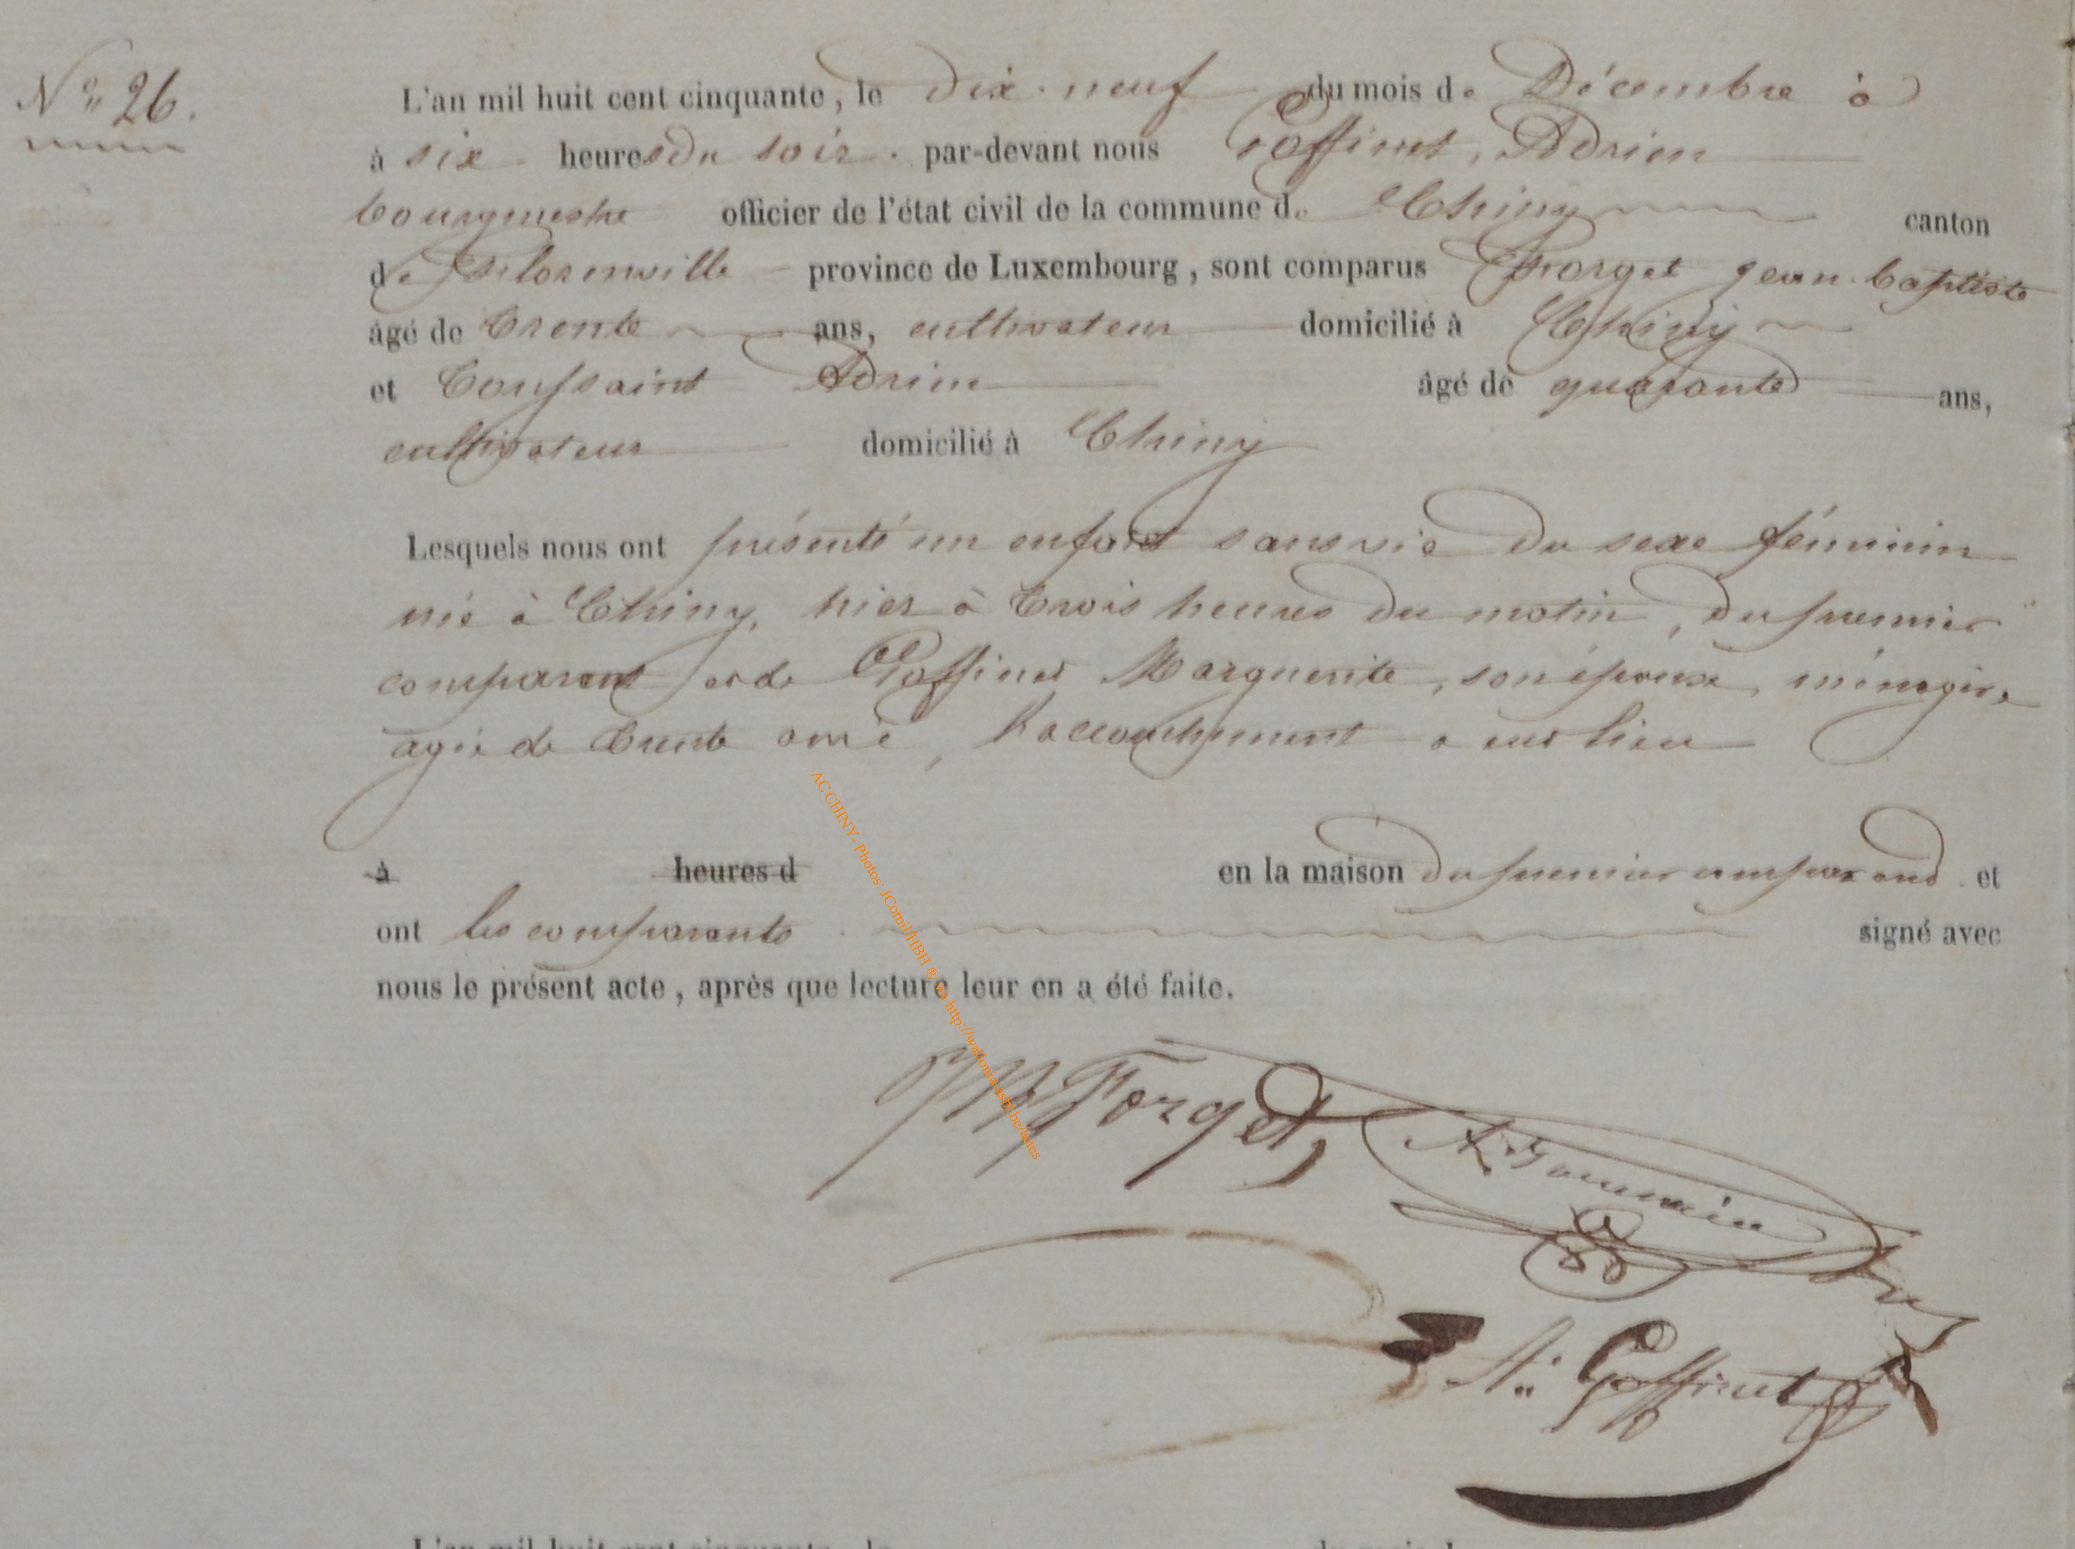 N° 26.
L'an mil huit cent cinquante, le dix-neuf du mois de Décembre à
à six heures du soir. par-devant nous Goffinet, Adrien
bourgmestre officier de l'état civil de la commune de Chiny canton
de Florenville province de Luxembourg, sont comparus Forget jean baptiste
âgé de trente ans, cultivateur domicilié à Chiny
et Toussaint Adrien âgé de quarante ans,
cultivateur domicilié à Chiny
Lesquels nous ont présenté un enfant sans vie du sexe féminin
né à Chiny, hier à trois heures du matin, du premier
comparant et de Goffinet Marguerite, son épouse, ménagère
agée de trente ans, l'accouchement a eu lieu
à heures d en la maison du premier comparant et
ont les comparants signé avec
nous le présent acte, après que lecture leur en a été faite.
JB Forget,
A. Goffinet
AC CHINY - Photos: JCornil/HBH
L'an mil huit cent cinquante, le du mois d